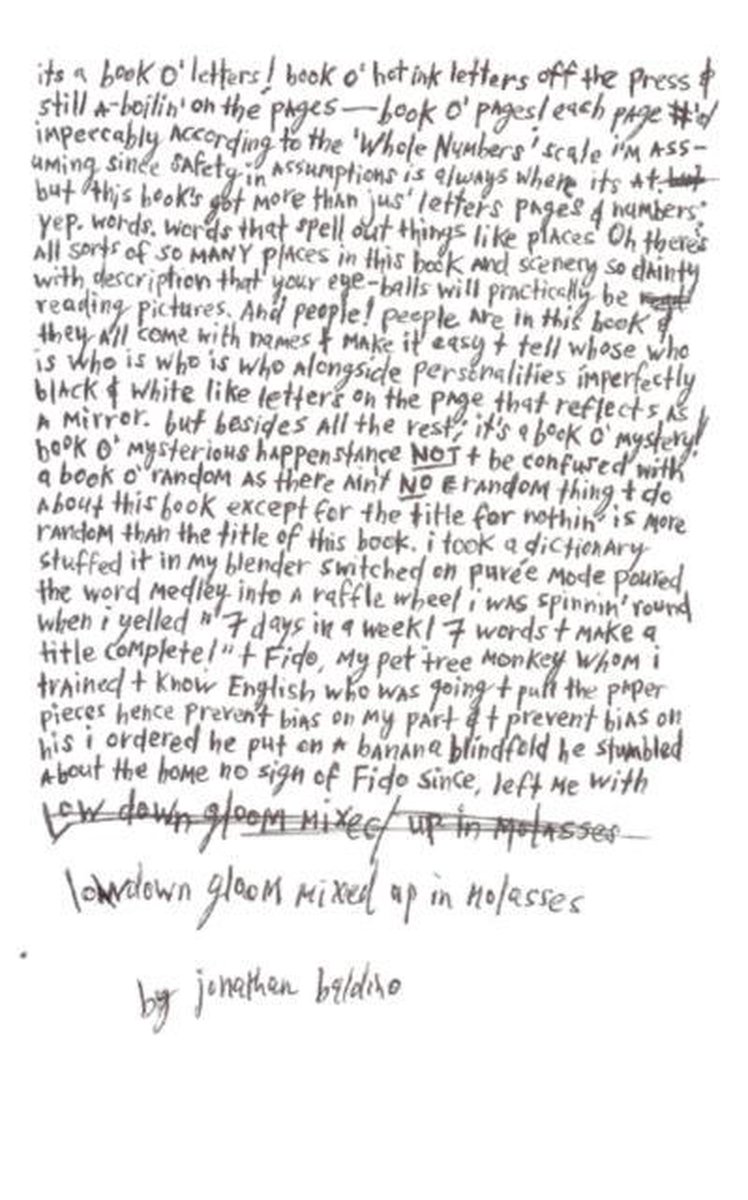 its a book o' letters! book o' hot ink letters off the press &
still a-boilin' on the pages—book o' pages! each page #'d
impeccably according to the 'Whole Numbers' scale i'm ass-
uming since safety in assumptions is always where its at. but
but this book's got more than jus' letters pages & numbers.
yep. words. words that spell out things like places Oh there's
all sorts of so many places in this book and scenery so dainty
with description that your eye-balls will practically be
reading pictures. And people! people are in this book &
they all come with names t make it easy t tell whose who
is who is who is who alongside personalities imperfectly
black & white like letters on the page that reflects as
a mirror. but besides all the rest, it's a book o' mystery!
book o' mysterious happenstance NOT t be confused with
a book o' random as there ain't NO Erandom thing t do
about this book except for the title for nothin' is more
random than the title of this book. i took a dictionary
stuffed it in my blender switched on purée mode poured
the word medley into a raffle wheel i was spinnin' round
when i yelled "7 days in a week! 7 words t make a
title complete!" t Fido, my pet tree monkey whom i
trained t know English who was going t pull the paper
pieces hence prevent bias on my part & t prevent bias on
his i ordered he put on a banana blindfold he stumbled
about the home no sign of Fido since, left me with
Low down gloom mixed up in molasses
lowdown gloom mixed up in molasses
by jonathan baldino